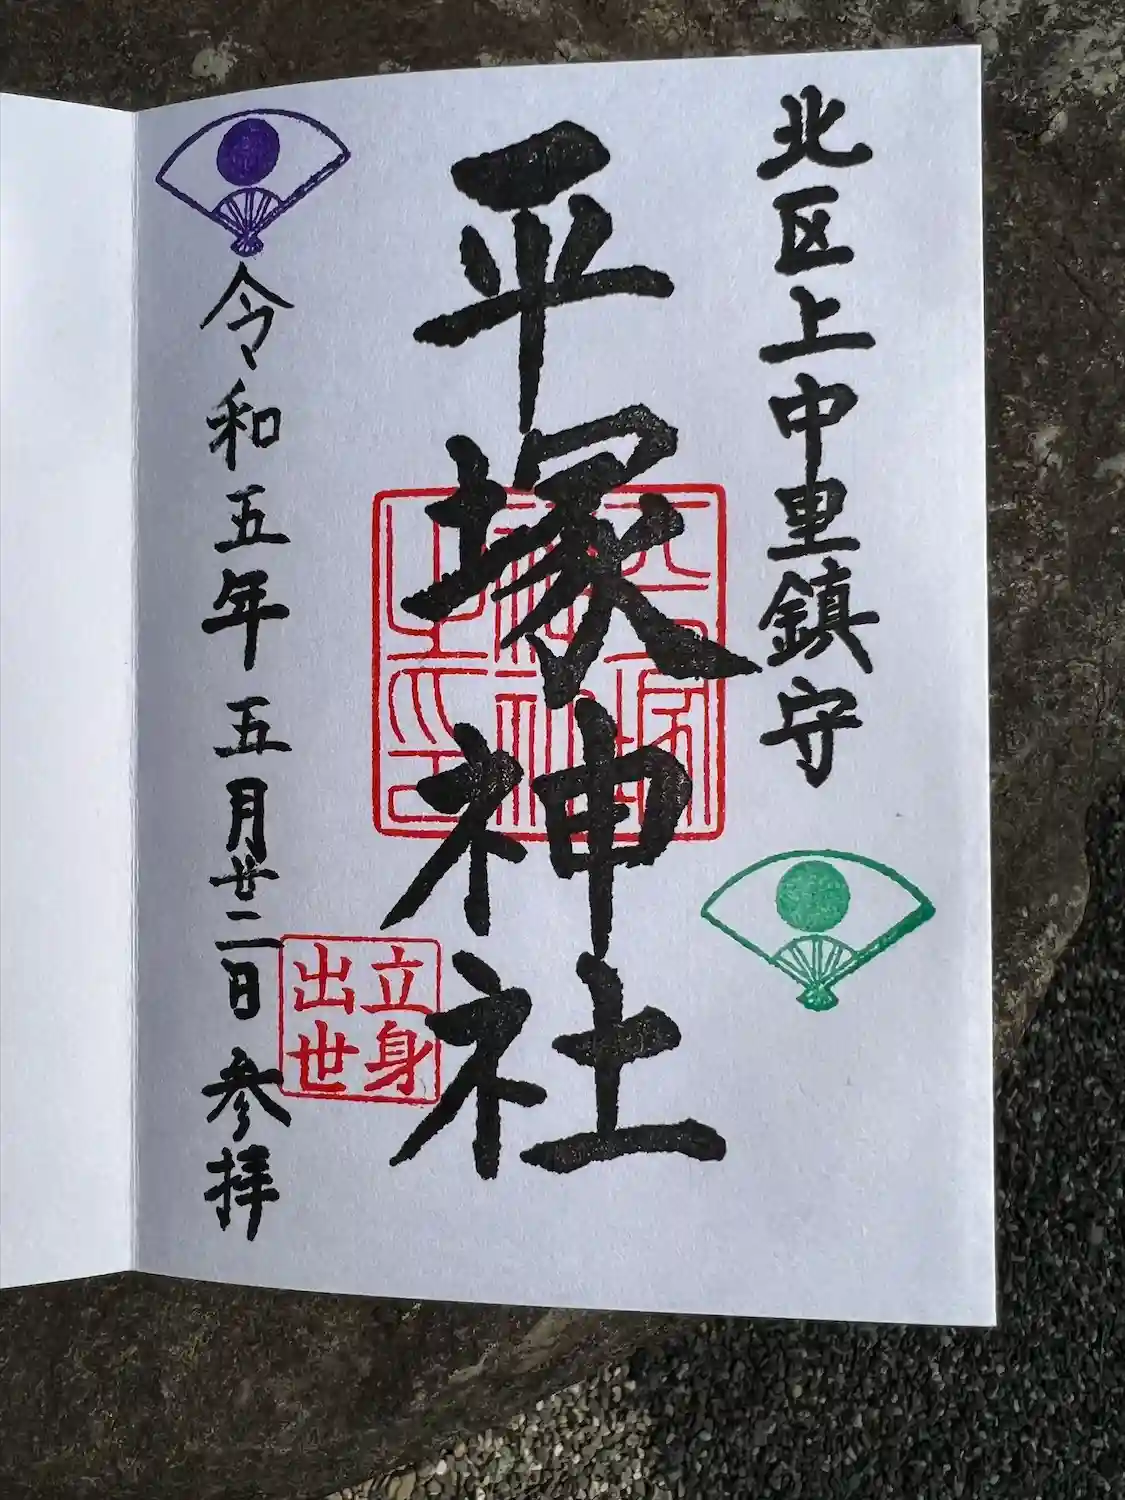 北区上中里鎮守
平塚神社
平塚神社之宮司印
立身出世
令和五年五月廿二日 参拝